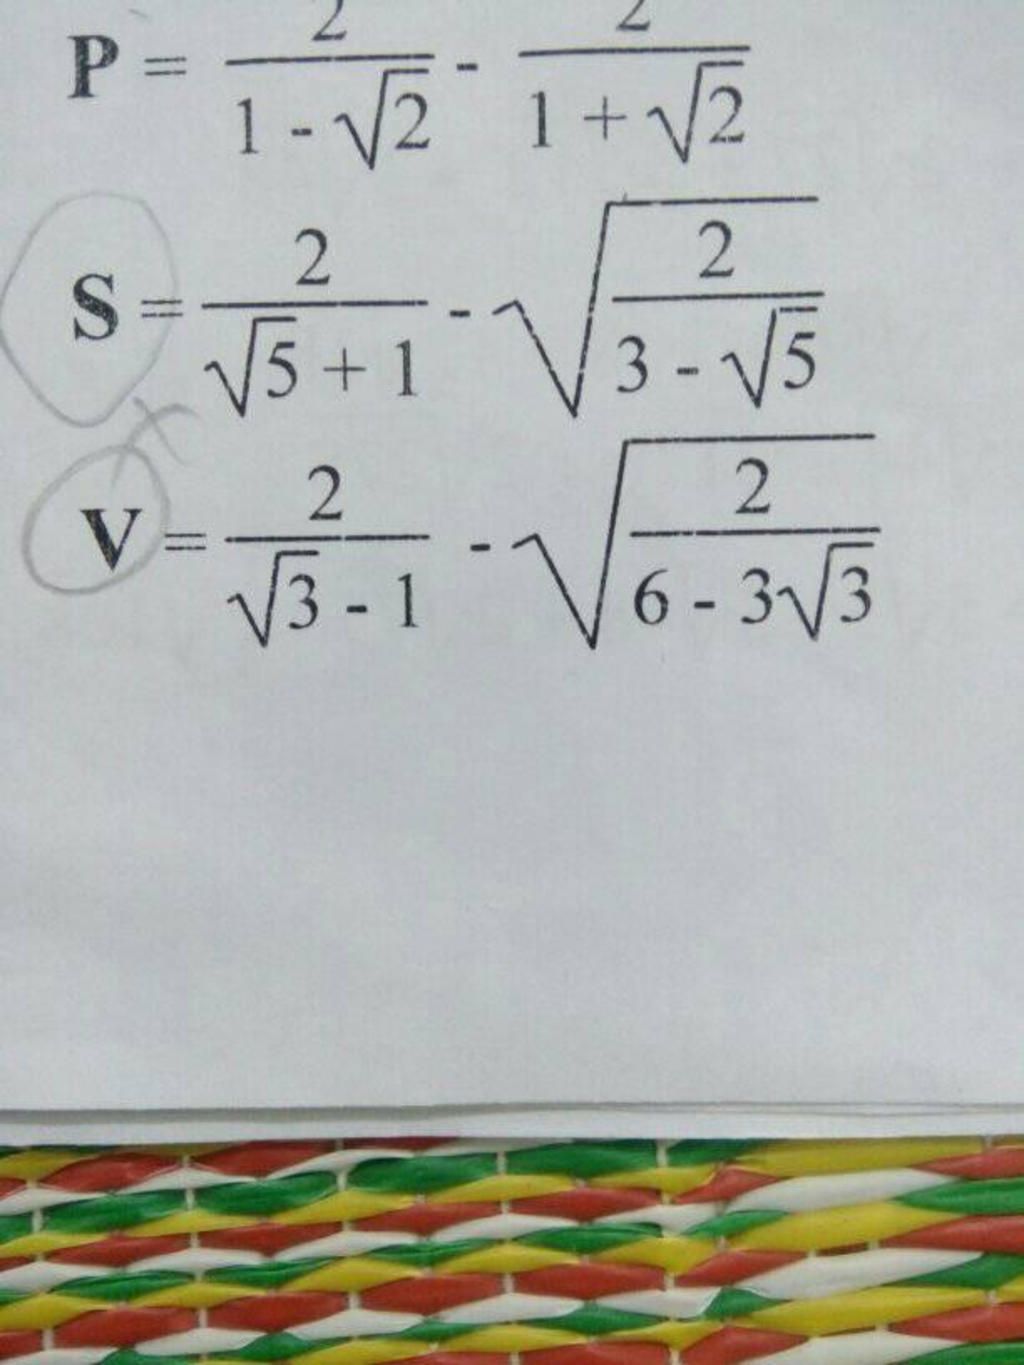 P = 2/(1 - √2) - 2/(1 + √2)
S = 2/(√5 + 1) - √(2/(3 - √5))
V = 2/(√3 - 1) - √(2/(6 - 3√3))